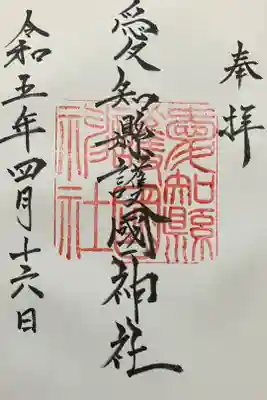 奉拝
愛知縣護國神社
愛知縣護國神社
令和五年四月十六日